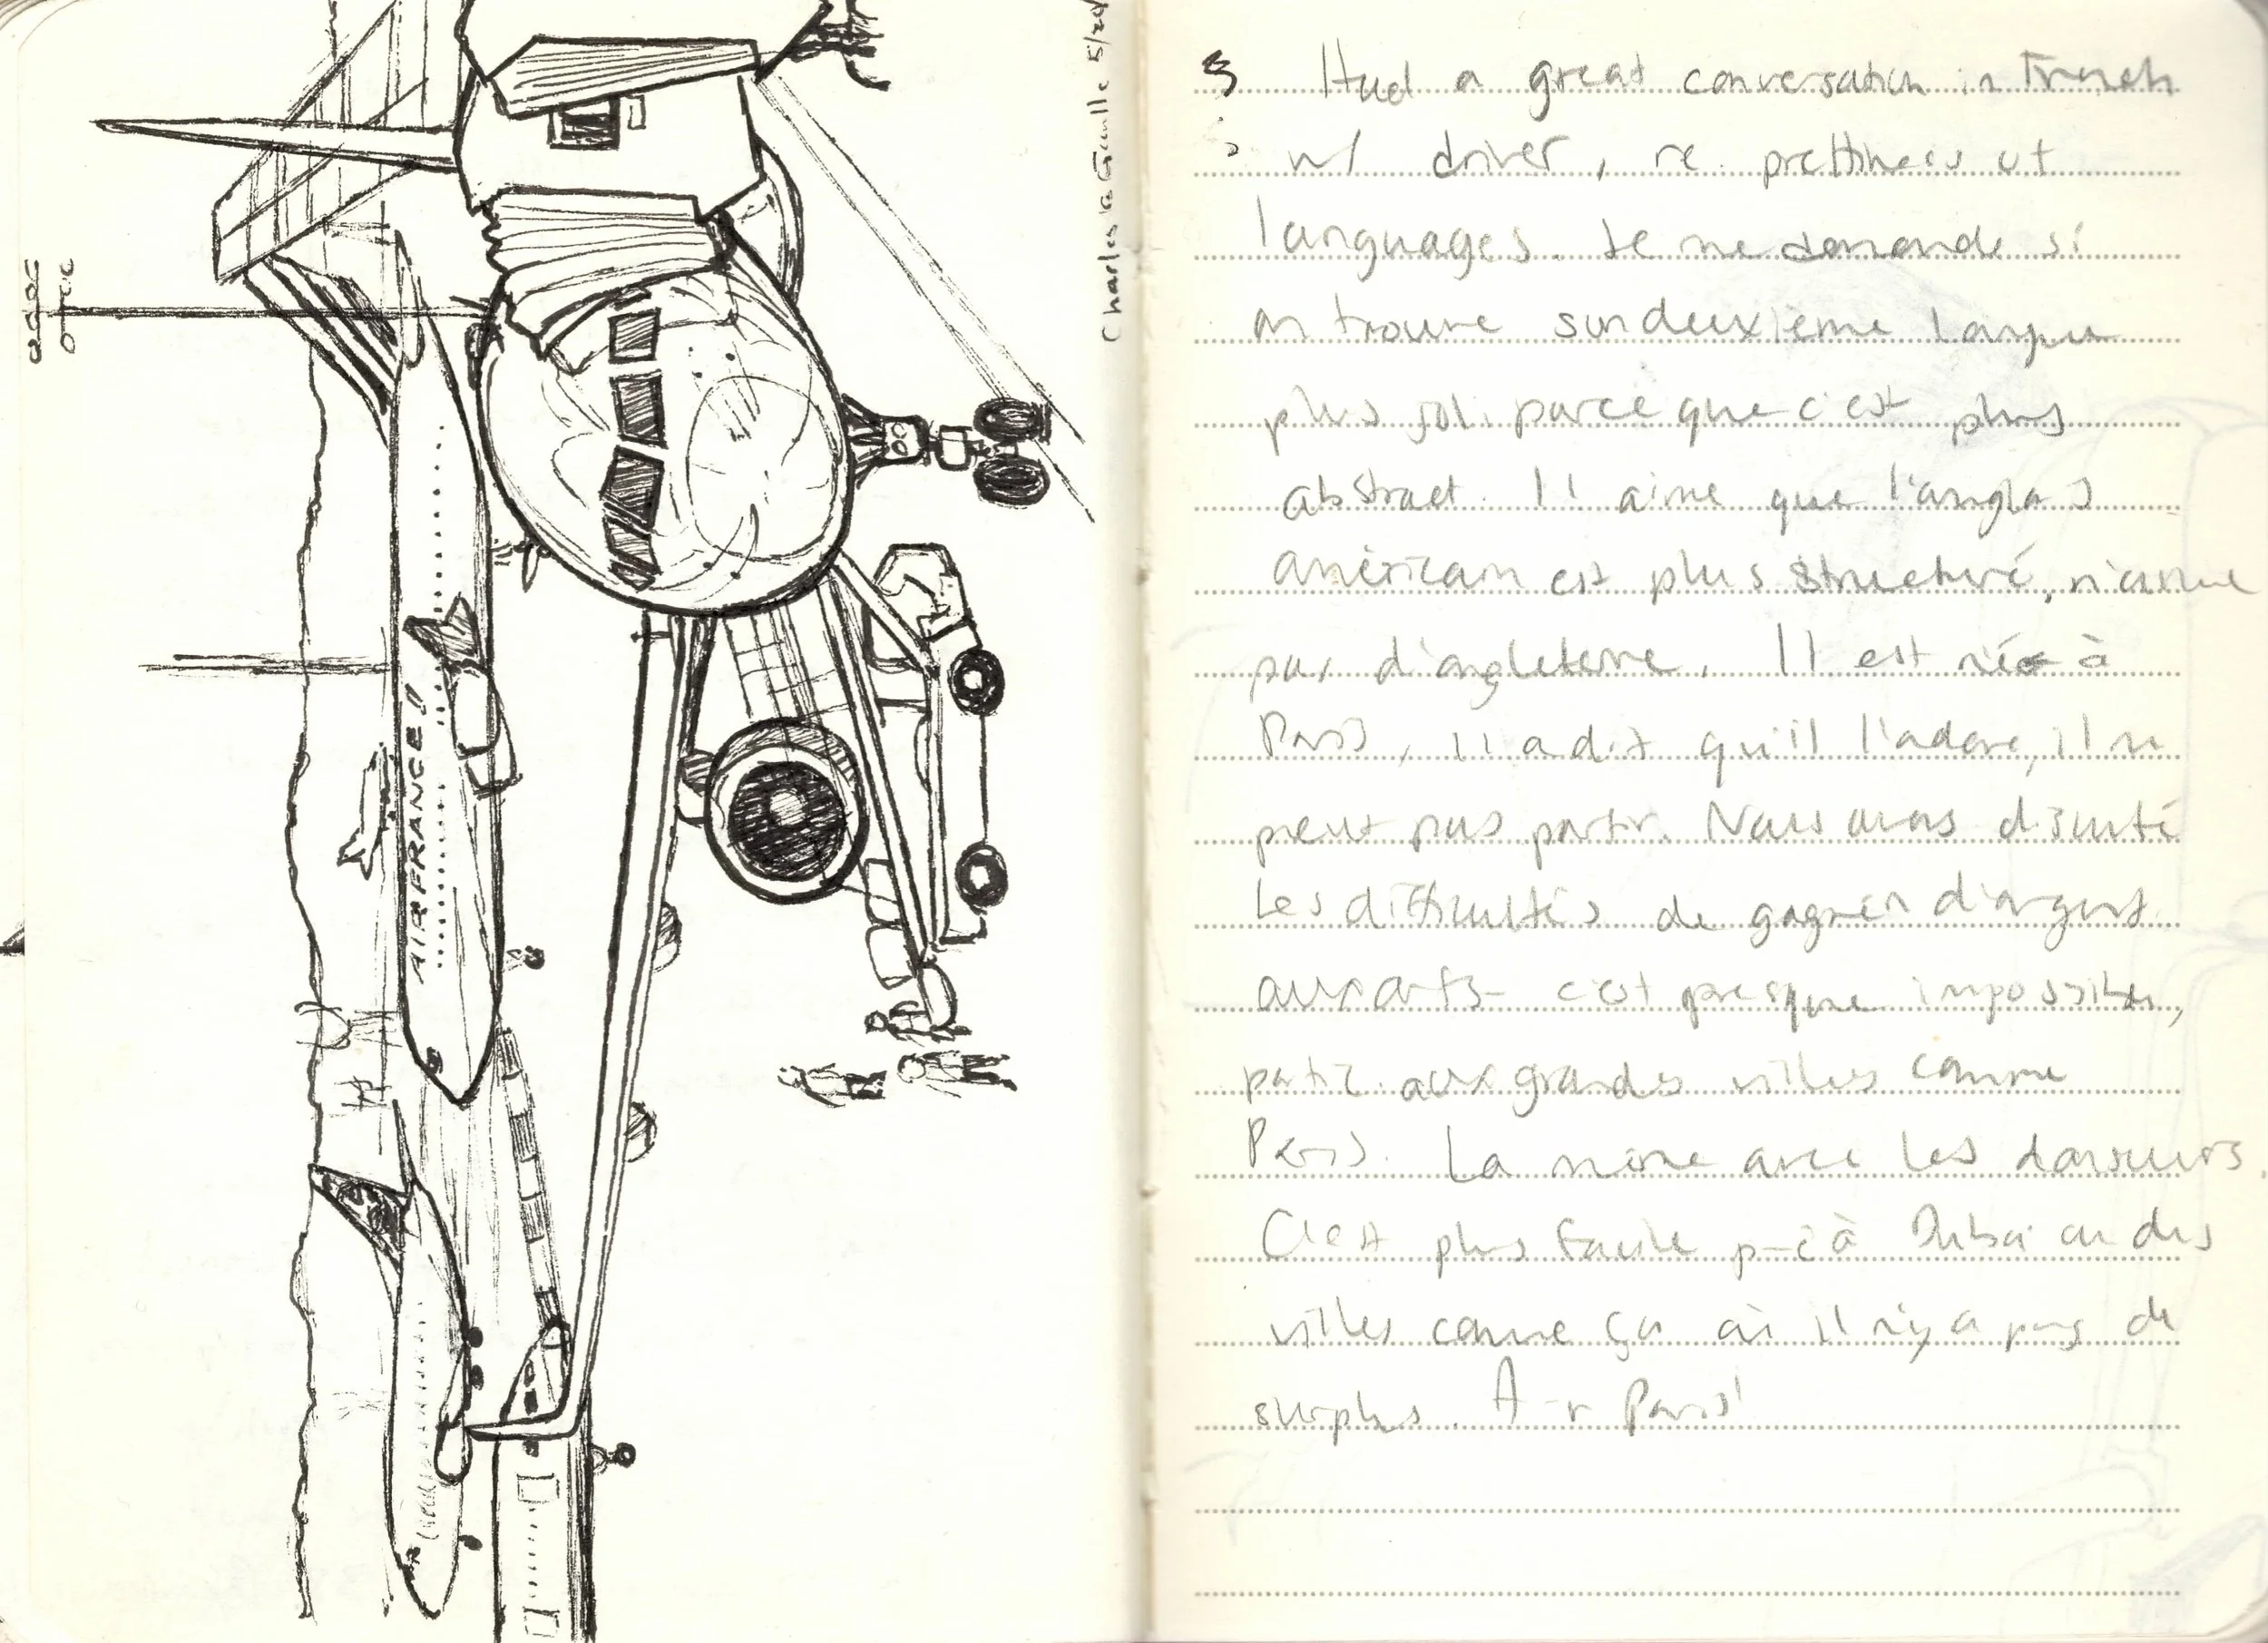 Charles de Gaulle 5/24
AIRFRANCE
Had a great conversation in French
w/ driver, re. prettiness of
languages. Je me demande si
on trouve son deuxième langue
plus joli parce que c'est plus
abstract. Il aime que l'anglais
américain est plus structuré, n'aime
pas d'angleterre. Il est né à
Paris, il a dit qu'il l'adore, il ne
peut pas partir. Nous avons discuté
les difficultés de gagner d'argent
aux arts - c'est presque impossible,
partic. aux grandes villes comme
Paris. La même avec les danseurs.
C'est plus facile p-ê à Dubai ou des
villes comme ça où il n'y a pas de
surplus. A-r Paris!